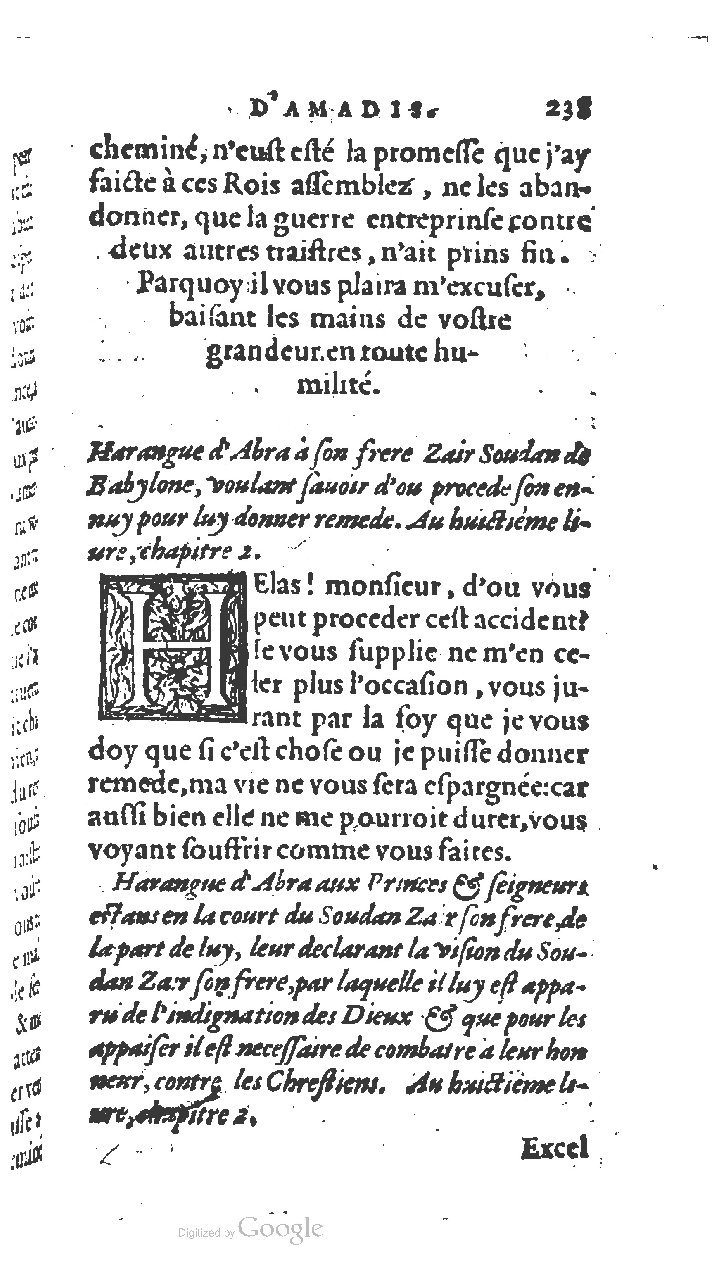 D'AMADIS. 238
cheminé, n'euſt eſté la promeſſe que j'ay
faicte à ces Rois aſſemblez, ne les aban-
donner, que la guerre entreprinſe contre
deux autres traiſtres, n'ait prins fin.
Parquoy il vous plaira m'excuſer,
baiſant les mains de voſtre
grandeur en toute hu-
milité.
Harangue d'Abra à ſon frere Zair Soudan de
Babylone, voulant ſauoir d'ou procede ſon en-
nuy pour luy donner remede. Au huictiéme li-
ure, chapitre 2.
HElas! monſieur, d'ou vous
peut proceder ceſt accident?
Ie vous ſupplie ne m'en ce-
ler plus l'occaſion, vous ju-
rant par la foy que je vous
doy que ſi c'eſt choſe ou je puiſſe donner
remede, ma vie ne vous ſera eſpargnée: car
auſſi bien elle ne me pourroit durer, vous
voyant ſouffrir comme vous faites.
Harangue d'Abra aux Princes & ſeigneurs
eſtans en la court du Soudan Zair ſon frere, de
la part de luy, leur declarant la viſion du Sou-
dan Zair ſon frere, par laquelle il luy eſt appa-
ru de l'indignation des Dieux & que pour les
appaiſer il eſt neceſſaire de combatre à leur hon
neur, contre les Chreſtiens. Au huictiéme li-
ure, chapitre 2.
Excel
Digitized by Google